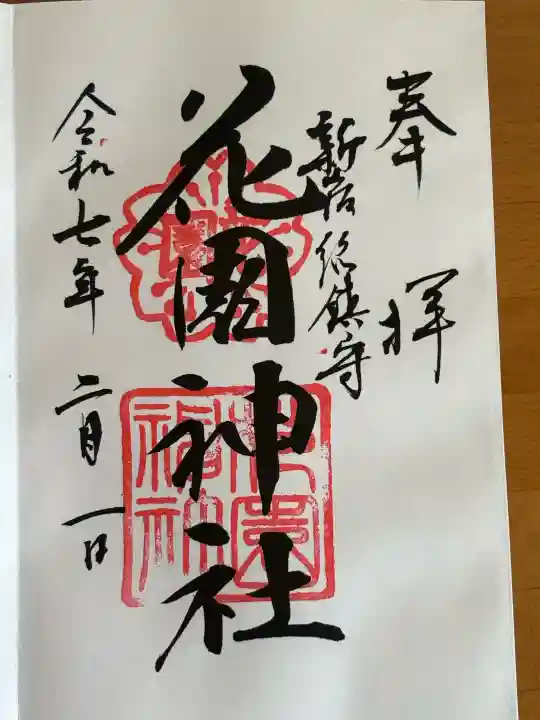 奉拝
新宿総鎮守
花園神社
令和七年二月一日